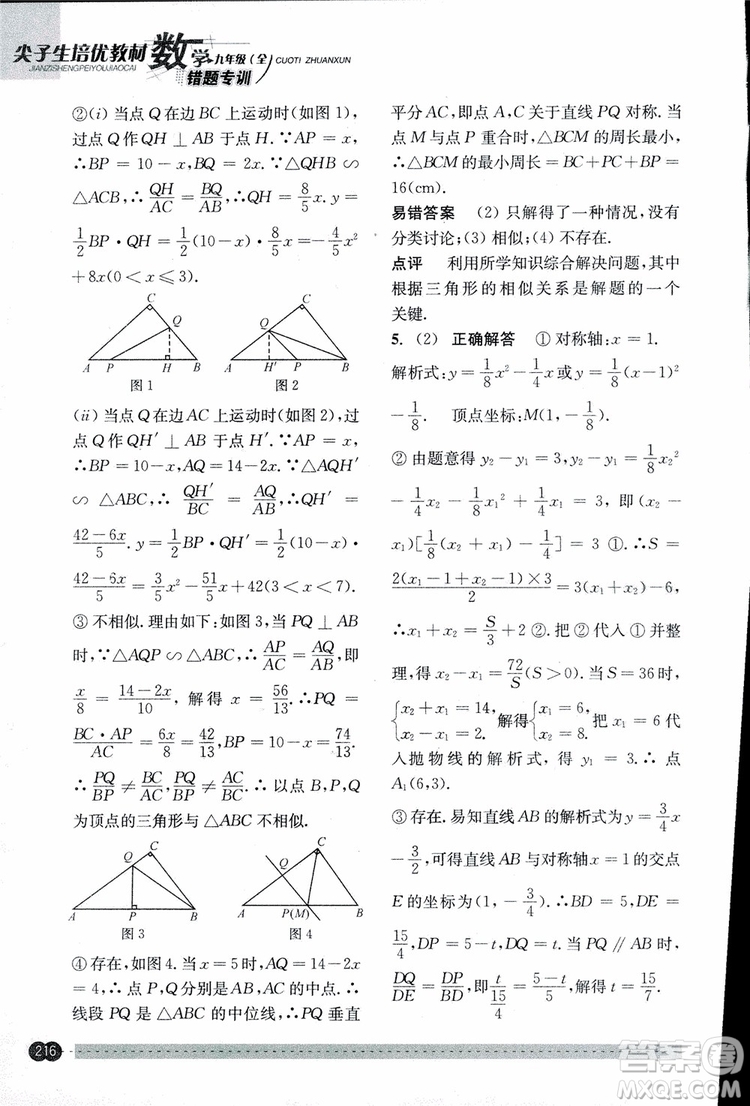 尖子生培优教材 数学 九年级(全) CUOTI ZHUANXUN
JIANZISHENGPEIYOUJIAOCAI 错题专训
②(i) 当点 Q 在边 BC 上运动时(如图 1),
过点 Q 作 QH ⊥ AB 于点 H. ∵ AP = x,
∴ BP = 10 - x, BQ = 2x. ∵ △QHB ∽
△ACB, ∴ QH/AC = BQ/AB, ∴ QH = 8/5 x. y =
1/2 BP · QH = 1/2 (10 - x) · 8/5 x = - 4/5 x²
+ 8x(0 < x ≤ 3).
C Q A P H B
图 1
C Q A H′ P B
图 2
(ii) 当点 Q 在边 AC 上运动时(如图 2), 过
点 Q 作 QH′ ⊥ AB 于点 H′. ∵ AP = x,
∴ BP = 10 - x, AQ = 14 - 2x. ∵ △AQH′
∽ △ABC, ∴ QH′/BC = AQ/AB, ∴ QH′ =
(42 - 6x)/5. y = 1/2 BP · QH′ = 1/2 (10 - x) ·
(42 - 6x)/5 = 3/5 x² - 51/5 x + 42(3 < x < 7).
③ 不相似. 理由如下: 如图 3, 当 PQ ⊥ AB
时, ∵ △AQP ∽ △ABC, ∴ AP/AC = AQ/AB, 即
x/8 = (14 - 2x)/10, 解得 x = 56/13. ∴ PQ =
BC · AP/AC = 6x/8 = 42/13, BP = 10 - x = 74/13.
∴ PQ/BP ≠ BC/AC, PQ/BP ≠ AC/BC. ∴ 以点 B, P, Q
为顶点的三角形与 △ABC 不相似.
Q C A P B
图 3
Q C A P(M) B
图 4
④ 存在, 如图 4. 当 x = 5 时, AQ = 14 - 2x
= 4, ∴ 点 P, Q 分别是 AB, AC 的中点. ∴
线段 PQ 是 △ABC 的中位线, ∴ PQ 垂直
平分 AC, 即点 A, C 关于直线 PQ 对称. 当
点 M 与点 P 重合时, △BCM 的周长最小.
∴ △BCM 的最小周长 = BC + PC + BP =
16(cm).
易错答案 (2) 只解得了一种情况, 没有
分类讨论; (3) 相似; (4) 不存在.
点评 利用所学知识综合解决问题, 其中
根据三角形的相似关系是解题的一个
关键.
5. (2) 正确解答 ① 对称轴: x = 1.
解析式: y = 1/8 x² - 1/4 x 或 y = 1/8 (x - 1)²
- 1/8. 顶点坐标: M(1, - 1/8).
② 由题意得 y₂ - y₁ = 3, y₂ - y₁ = 1/8 x₂²
- 1/4 x₂ - 1/8 x₁² + 1/4 x₁ = 3, 即 (x₂ -
x₁)[1/8 (x₂ + x₁) - 1/4] = 3 ①. ∴ S =
2(x₁ - 1 + x₂ - 1) × 3/2 = 3(x₁ + x₂) - 6,
∴ x₁ + x₂ = S/3 + 2 ②. 把 ② 代入 ① 并整
理, 得 x₂ - x₁ = 72/S (S > 0). 当 S = 36 时,
{x₂ + x₁ = 14, x₂ - x₁ = 2. 解得 {x₁ = 6, x₂ = 8, 把 x₁ = 6 代
入抛物线的解析式, 得 y₁ = 3. ∴ 点
A₁(6, 3).
③ 存在. 易知直线 AB 的解析式为 y = 3/4 x
- 3/2, 可得直线 AB 与对称轴 x = 1 的交点
E 的坐标为 (1, - 3/4). ∴ BD = 5, DE =
15/4, DP = 5 - t, DQ = t. 当 PQ ∥ AB 时,
DQ/DE = DP/BD, 即 t/(15/4) = (5 - t)/5, 解得 t = 15/7.
216
答案圈
MXQE.COM